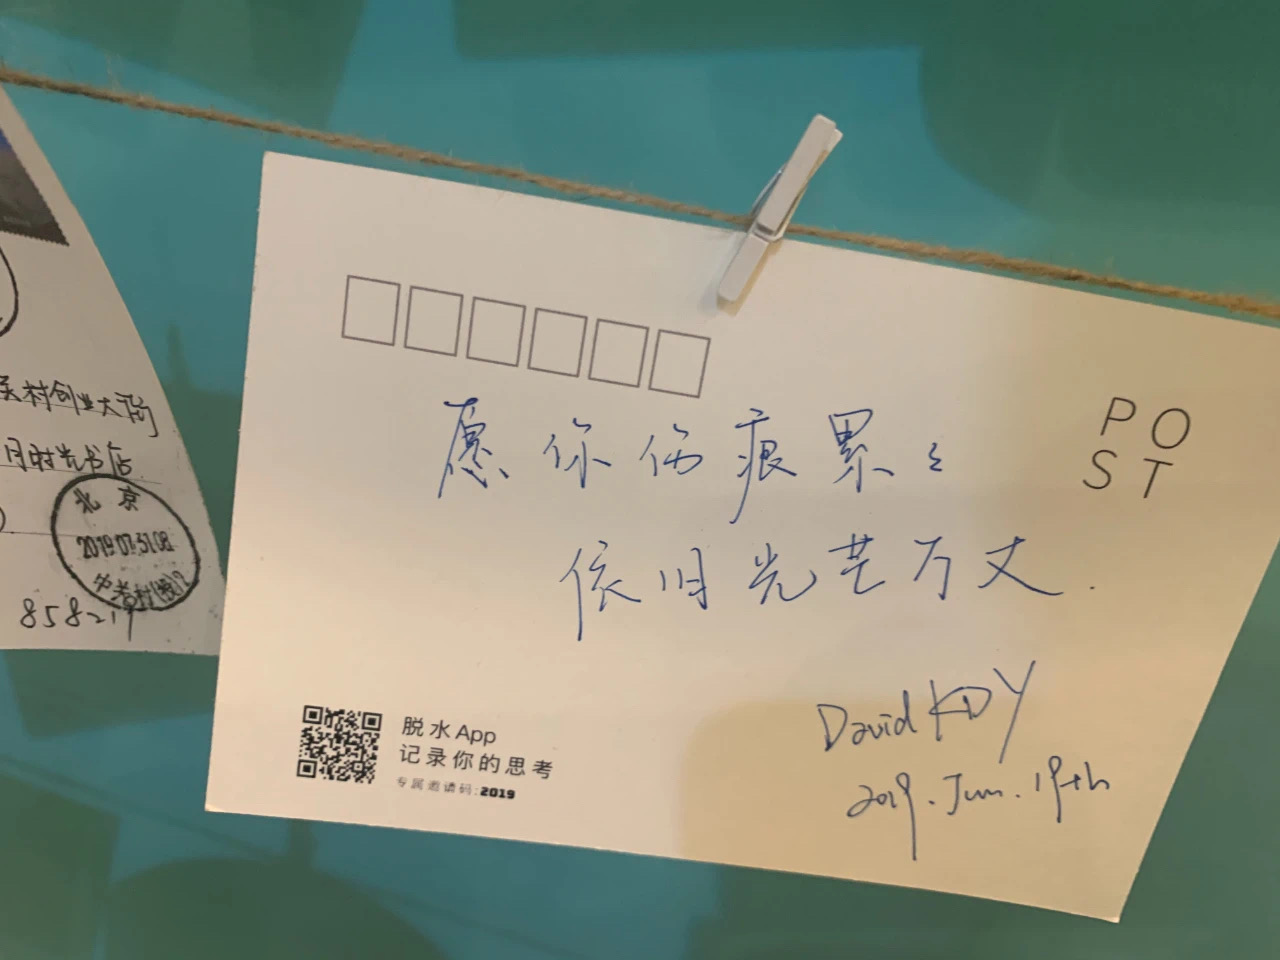 关村创业大街
月时光书店
北京
2019.07.31.08
858217
愿你伤痕累々
依旧光芒万丈.
PO
ST
David KDY
2019. Jun. 19th
脱水App
记录你的思考
专属邀请码:2019